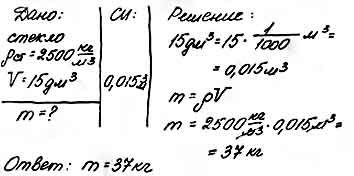 Дано:
стекло
ρст=2500 кг/м³
V=15дм³
m=?
СИ:
0,015м³
Решение:
15дм³=15·1/1000 м³=
=0,015м³
m=ρV
m=2500 кг/м³·0,015м³=
=37кг
Ответ: m=37кг